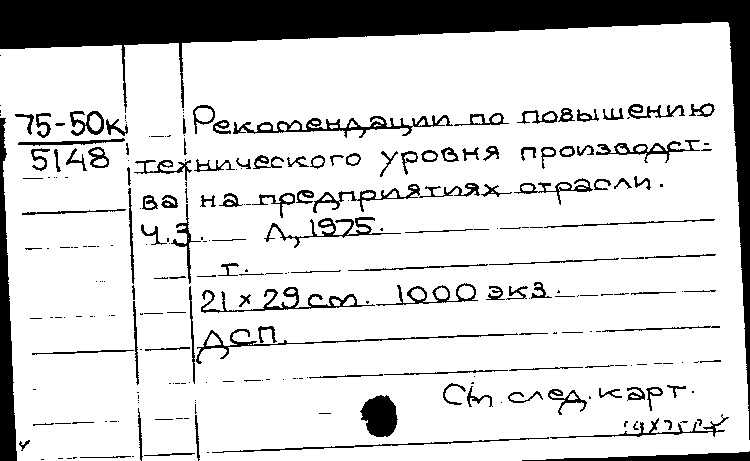 75-50к
5148
Рекомендации по повышению
технического уровня производст-
ва на предприятиях отрасли.
Ч.3. Л., 1975.
т.
21 × 29 cm. 1000 экз.
ДСП.
См. след. карт.